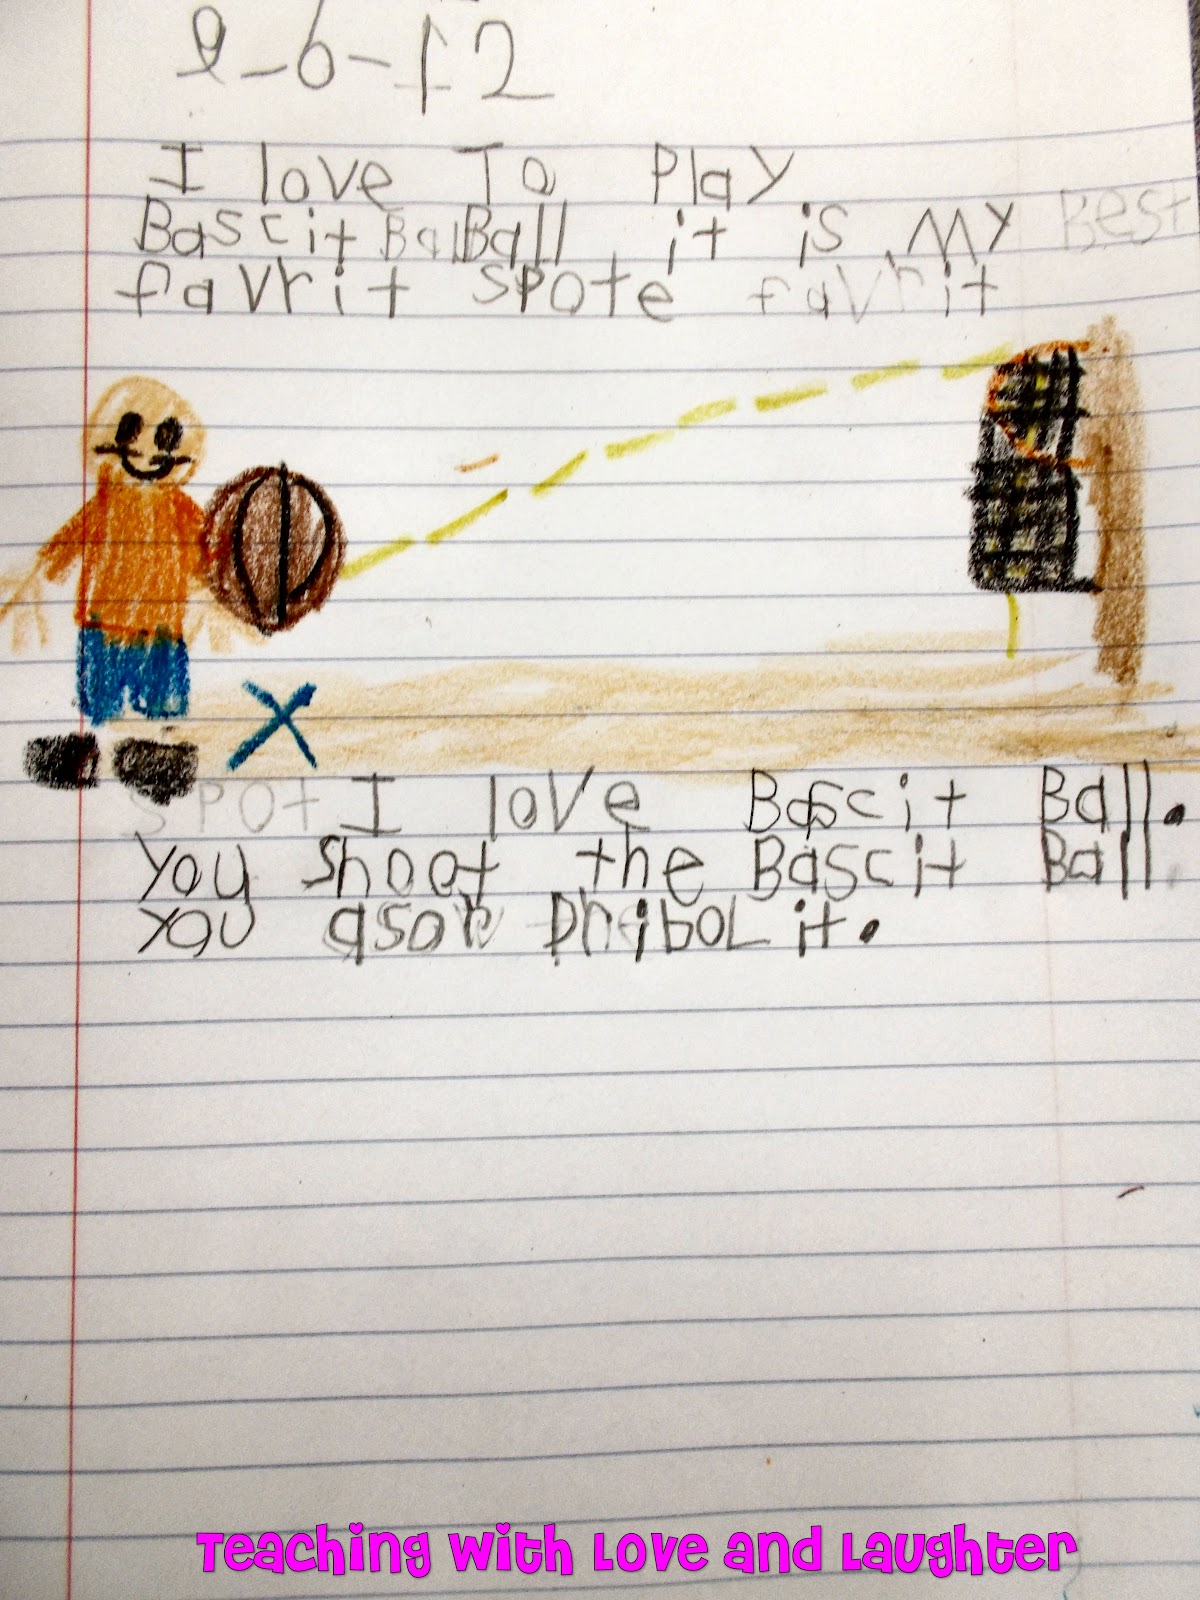 9-6-12
I love To Play
Bascit Ball it is My Best
favrit spote favrit
spot I love Bascit Ball.
You shoot the Bascit Ball
you asow Dribol it.
Teaching with Love and Laughter